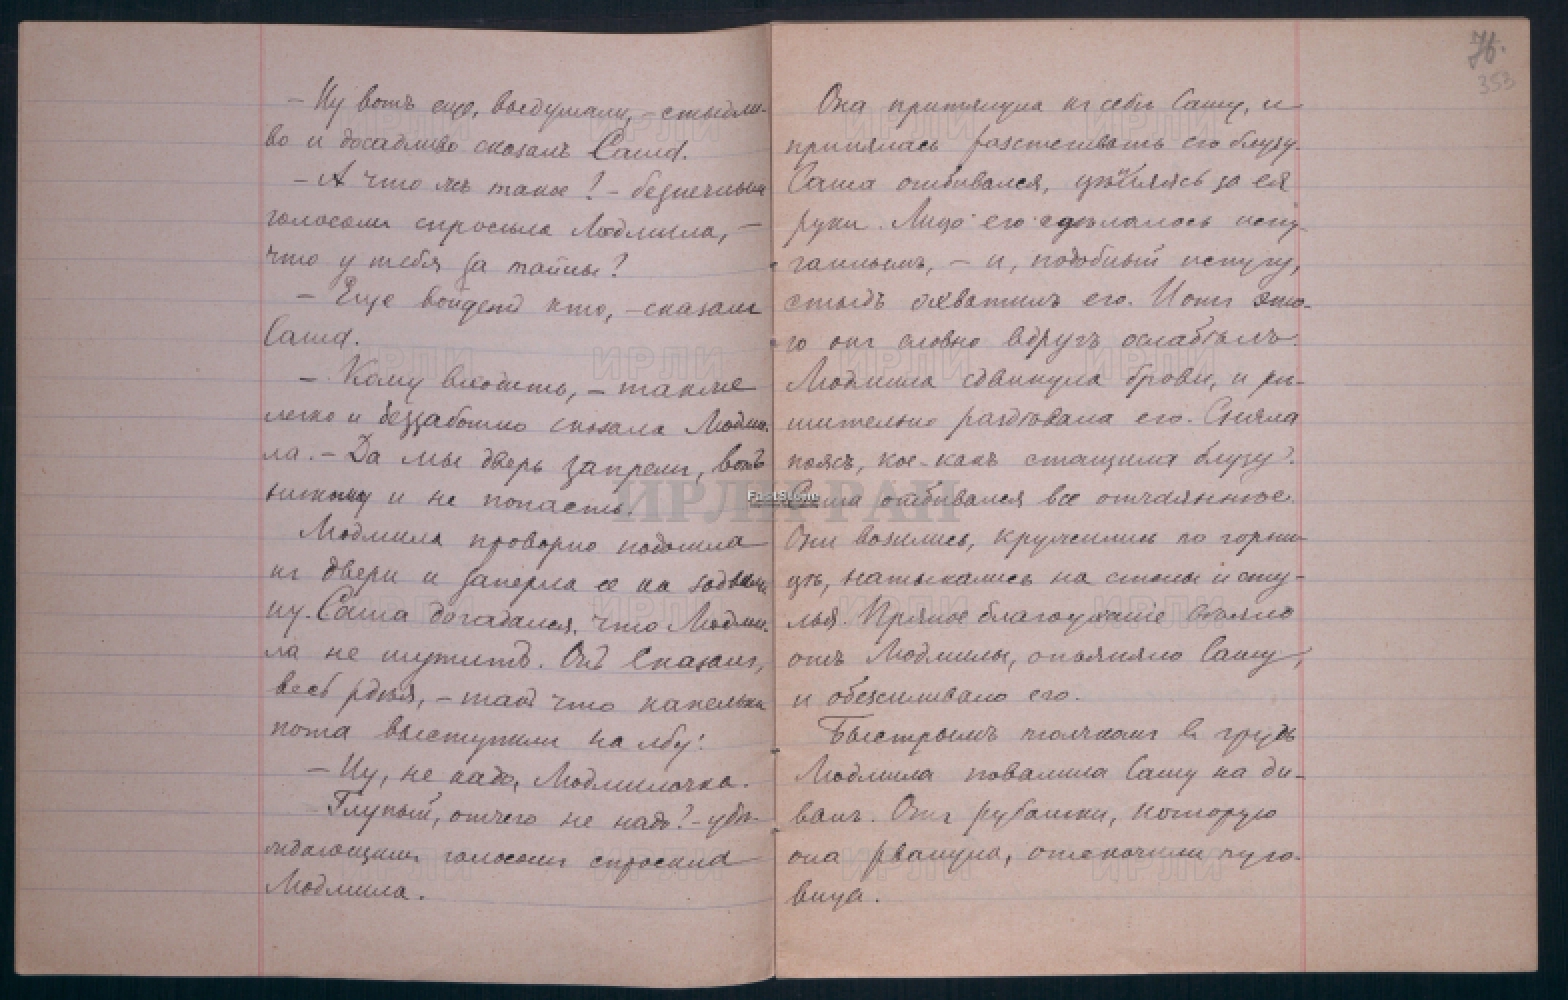 – Ну вотъ еще, выдумали, – стыдли-
во и досадливо сказалъ Саша.
– А что жъ такое? – безпечнымъ
голосомъ спросила Людмила, –
что у тебя за тайны?
– Еще войдетъ кто, – сказалъ
Саша.
– Кому входить, – также
легко и беззаботно сказала Людми-
ла. – Да мы дверь запремъ, вотъ
никому и не попасть.
Людмила проворно подошла
къ двери и заперла ее на задвиж-
ку. Саша догадался, что Людми-
ла не шутитъ. Онъ сказалъ,
весь рдѣя, – такъ что капельки
пота выступили на лбу:
– Ну, не надо, Людмилочка.
– Глупый, отчего не надо? – убѣ-
ждающимъ голосомъ спросила
Людмила.
76.
353
Она притянула къ себѣ Сашу, и
принялась разстегивать его блузу.
Саша отбивался, цѣпляясь за ея
руки. Лицо его сдѣлалось испу-
ганнымъ, – и, подобный испугу,
стыдъ охватилъ его. И отъ это-
го онъ словно вдругъ ослабѣлъ.
Людмила сдвинула брови, и рѣ-
шительно раздѣвала его. Сняла
поясъ, кое-какъ стащила блузу.
Саша отбивался все отчаяннѣе.
Они возились, кружились по горни-
цѣ, натыкались на столы и сту-
лья. Пряное благоуханіе вѣяло
отъ Людмилы, опьяняло Сашу,
и обезсиливало его.
Быстрымъ толчкомъ въ грудь
Людмила повалила Сашу на ди-
ванъ. Отъ рубашки, которую
она рванула, отскочила пуго-
вица.
ИРЛИ РАН
ИРЛИ